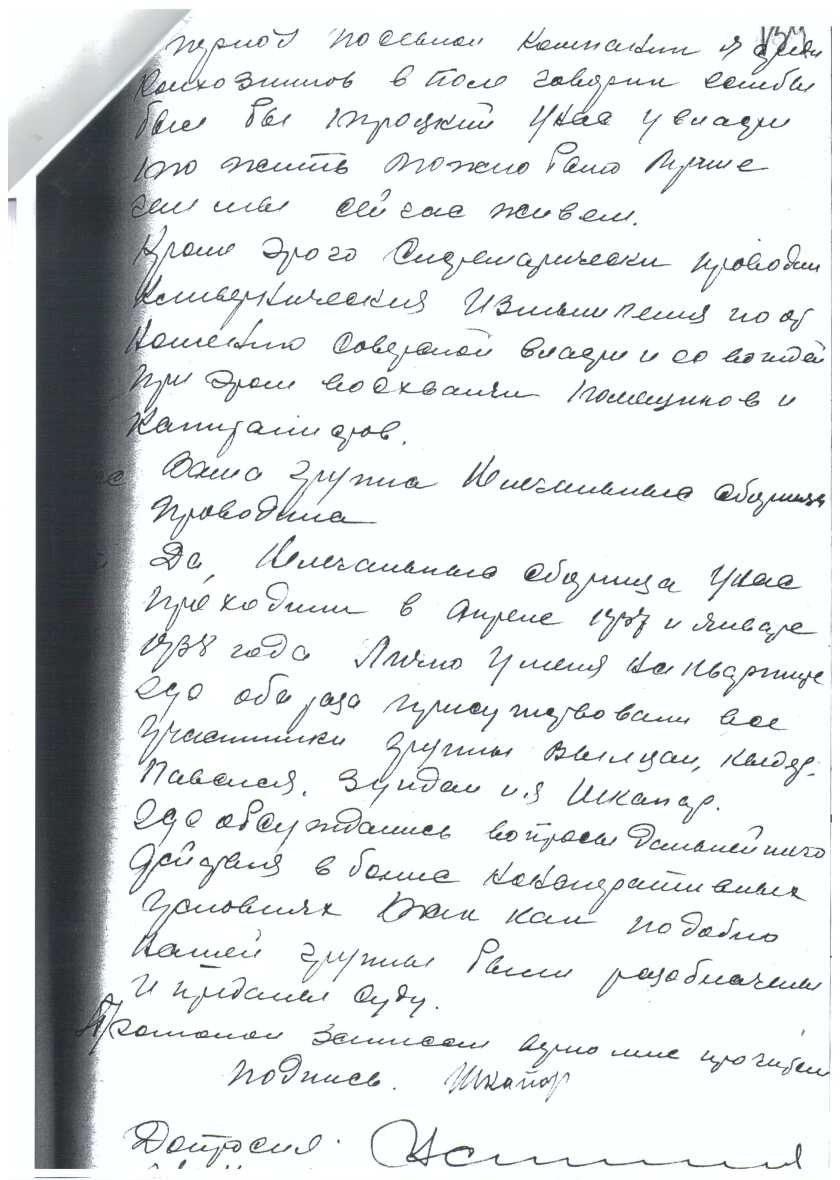 период посевной компании я среди
колхозников в поле говорил если бы
был бы троцкий у нас у власти
то жить можно было лучше
чем мы сейчас живем.
Кроме этого систематически проводили
Измышления
советской власти и ее вождей
При этом восхваляли помещиков и
капиталистов.
Ваша группа нелегальные сборища
проводила
Да, нелегальные сборища у нас
проходили в апреле 1937 и январе
1938 года Лично у меня на квартире
где оба раза присутствовали все
участники группы
и я Шкапар.
где обсуждались вопросы дальнейшего
действия в более
условиях так как подобно
нашей группы были разоблачены
и преданы суду.
Протокол записан верно мне прочитан
Подпись. Шкапар
Допросил.